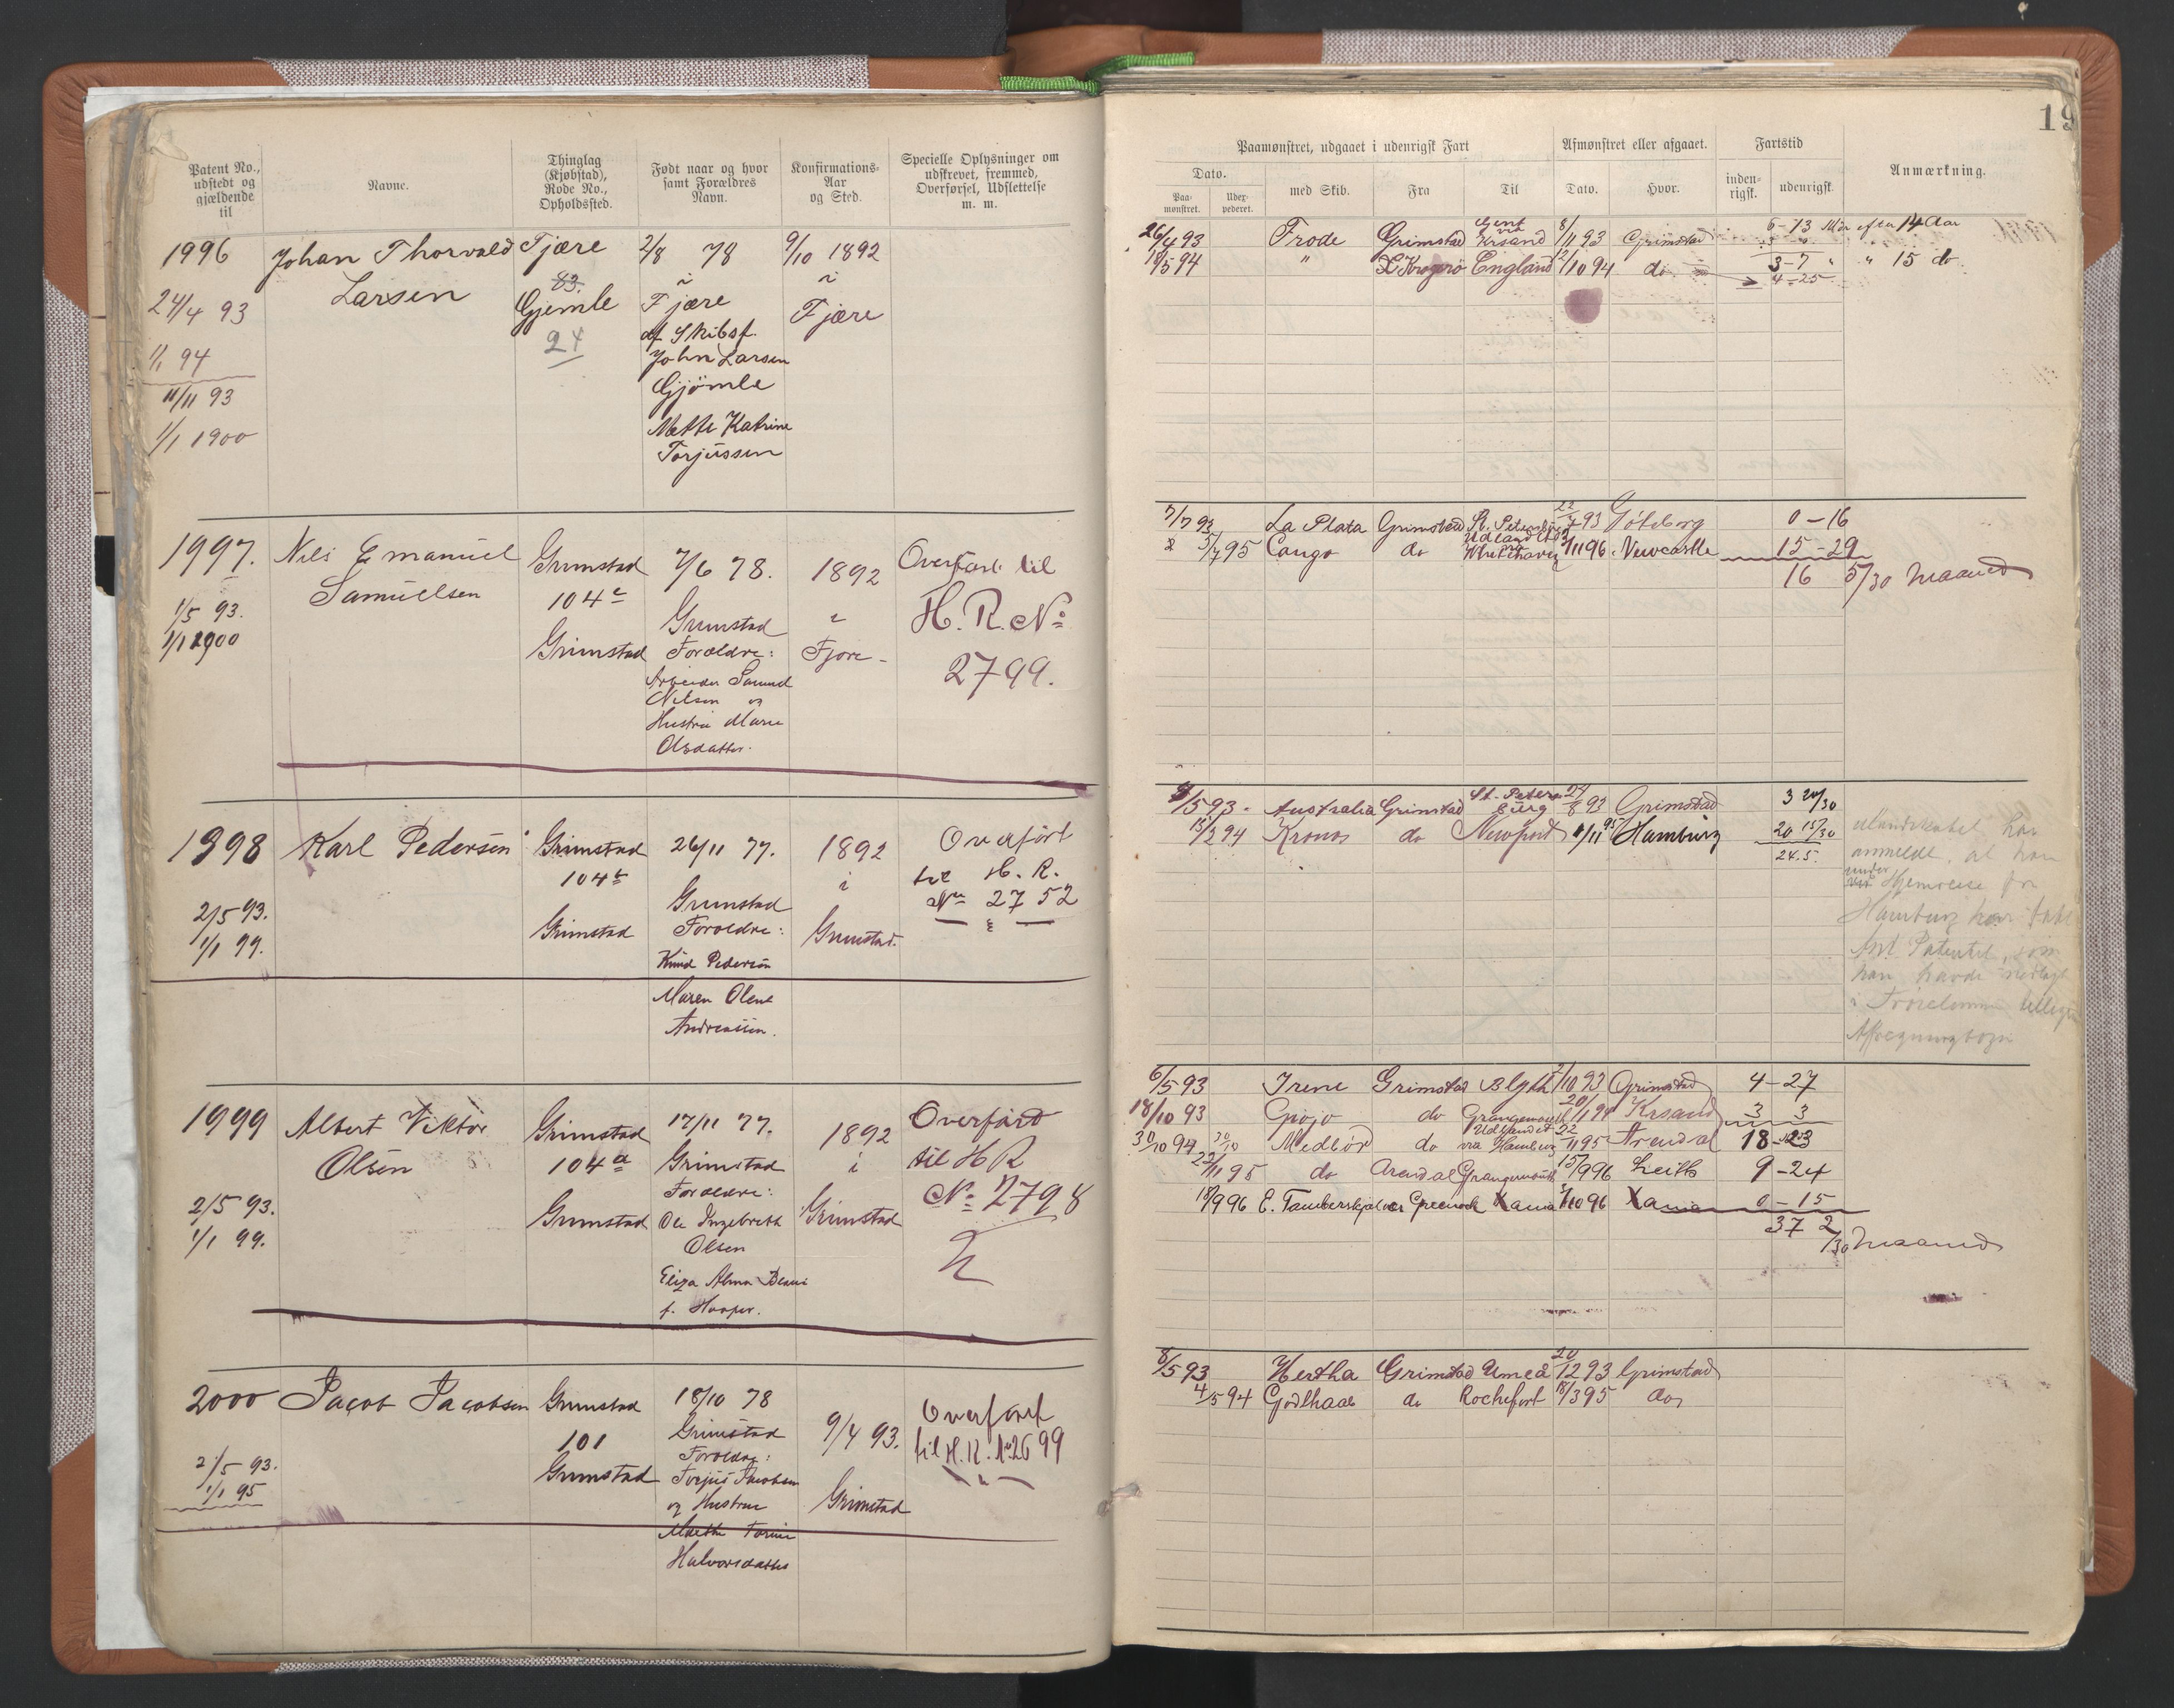 Patent No.,
udstedt og
gjældende
til
Navne.
Thinglag
(Kjøbstad),
Rode No.,
Opholdssted.
Født naar og hvor
samt Forældres
Navn.
Konfirmations-
Aar
og Sted.
Specielle Oplysninger om
udskrevet, fremmed,
Overførsel, Udslettelse
m. m.
1996
24/4 93
1/1 94
11/11 93
1/1 1900
Johan Thorvald
Larsen
Fjære
83.
Gjemle
24
2/8 78
i
Fjære
af Skibsf.
John Larsen
Gjömle
Mette Katrine
Torjussen
9/10 1892
i
Fjære
1997.
1/5 93.
1/1 1900
Nils Emanuel
Samuelsen
Grimstad
104
Grimstad
7/6 78.
Grimstad
Forældre:
Arbeider Samuel
Nilsen og
Hustru Maren
Olsdatter.
1892
i
Fjære
Overført til
H. R. No
2799.
1998
2/5 93.
1/1 99.
Karl Pedersen
Grimstad
104
Grimstad
26/11 77.
Grimstad
Forældre:
Knud Pedersen
Maren Olene
Andreassen.
1892
i
Grimstad.
Overført
til H. R.
No 2752
1999
2/5 93.
1/1 99.
Albert Viktor
Olsen
Grimstad
104 a
Grimstad
17/11 77.
Grimstad
Forældre:
Ole Ingebreth
Olsen
Eliza Alma
f. Hooper.
1892
i
Grimstad
Overført
til H R
No 2798
2000
2/5 93.
1/1 95
Jacob Jacobsen
Grimstad
101
Grimstad
18/10 78
Grimstad
Forældre:
Torjus Jacobsen
og Hustru
Halvorsdatter
9/4 93.
Grimstad
Overført
til H. R. No 2699
19
Paamønstret, udgaaet i udenrigsk Fart
Afmønstret eller afgaaet.
Fartstid
Anmærkning.
Dato.
Paa-
mønstret.
Udex-
pederet.
med Skib.
Fra
Til
Dato.
Hvor.
inden-
rigsk.
udenrigsk.
26/4 93 Frode Grimstad Gent via Krsand 8/11 93 Grimstad 6-13 efter 14 Aar
18/5 94 " L. Kragerø England 2/10 94 do 3-7 " " 15 do
4-25
7/7 93 La Plata Grimstad St. Petersburg 22/7 93 Göteborg 0-16
5/7 95 Congo do Udlandet 11 96 Newcastle 15-29
16 5/30 Maaned
9/5 93. Australia Grimstad St. Petersburg 24/8 93 Grimstad 3 20/30
13/2 94 Kronos do Newport /11 95 Hamburg 20 15/30
24.5.
anmeldt, at han
under Hjemreise fra
Hamburg har tabt
sit Patentet, som
han havde nedlagt
i tillige
Afregningsbogen
6/5 93 Irene Grimstad Blyth 2/10 93 Grimstad 4-27
18/10 93 Gjøjo do Grangemouth 20/1 94 Krsand 3 3
30/10 94 30/10 Medbör do Udlandet via Hamburg 22/11 95 Arendal 18-23
22/11 95 do Arendal Grangemouth 15/9 96 Leith 9-24
18/9 96 E. Tambarskjelver Greenock Xania /10 96 Xania 0-15
37 2/30 Maaned
8/5 93 Hertha Grimstad Umeå 20/12 93 Grimstad
4/5 94 Godthaab do Rochefort 18/3 95 do